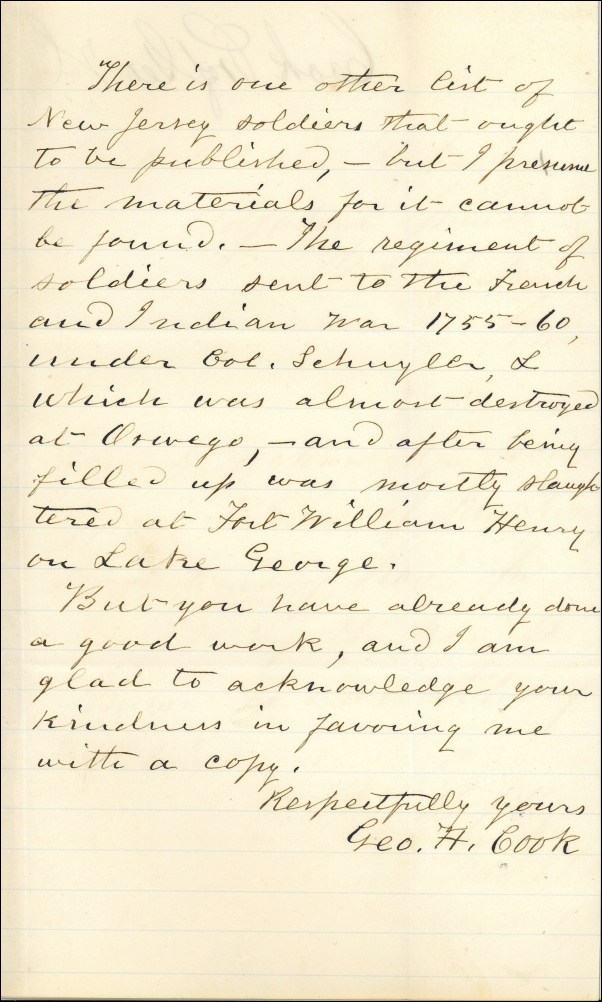 There is one other list of
New Jersey soldiers that ought
to be published, – but I presume
the materials for it cannot
be found. – The regiment of
soldiers sent to the French
and Indian War 1755–60,
under Col. Schuyler, &
which was almost destroyed
at Oswego, – and after being
filled up was mostly slaugh
tered at Fort William Henry
on Lake George.
But you have already done
a good work, and I am
glad to acknowledge your
kindness in favoring me
with a copy.
Respectfully yours
Geo. H. Cook